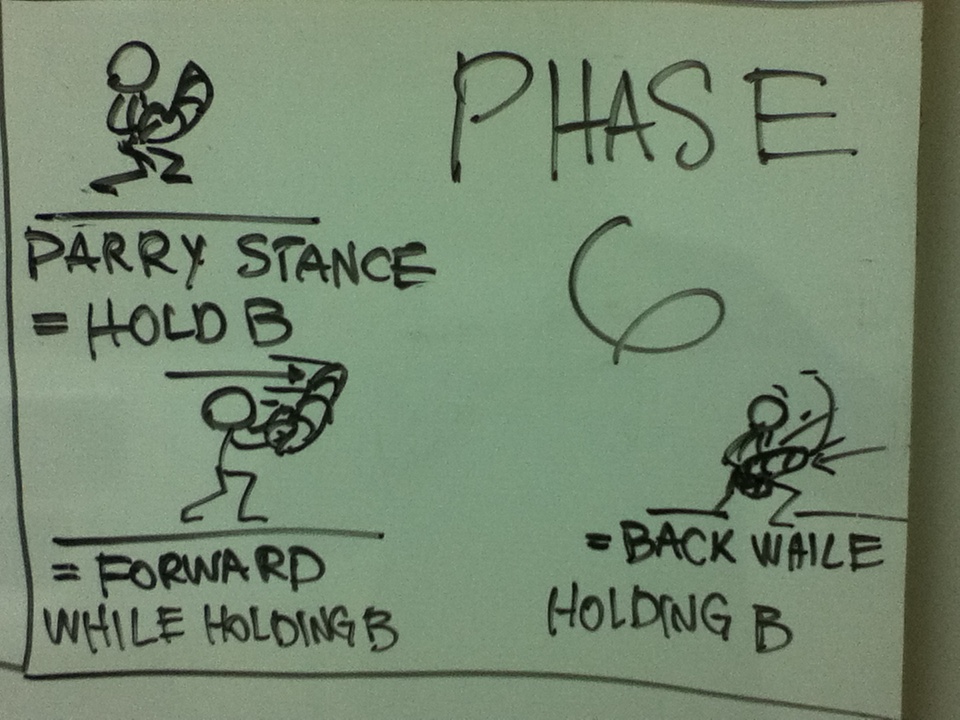 PHASE
6
PARRY STANCE
= HOLD B
= FORWARD
WHILE HOLDING B
= BACK WHILE
HOLDING B